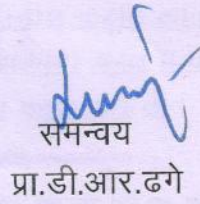 समन्वय
प्रा.डी.आर.ढगे